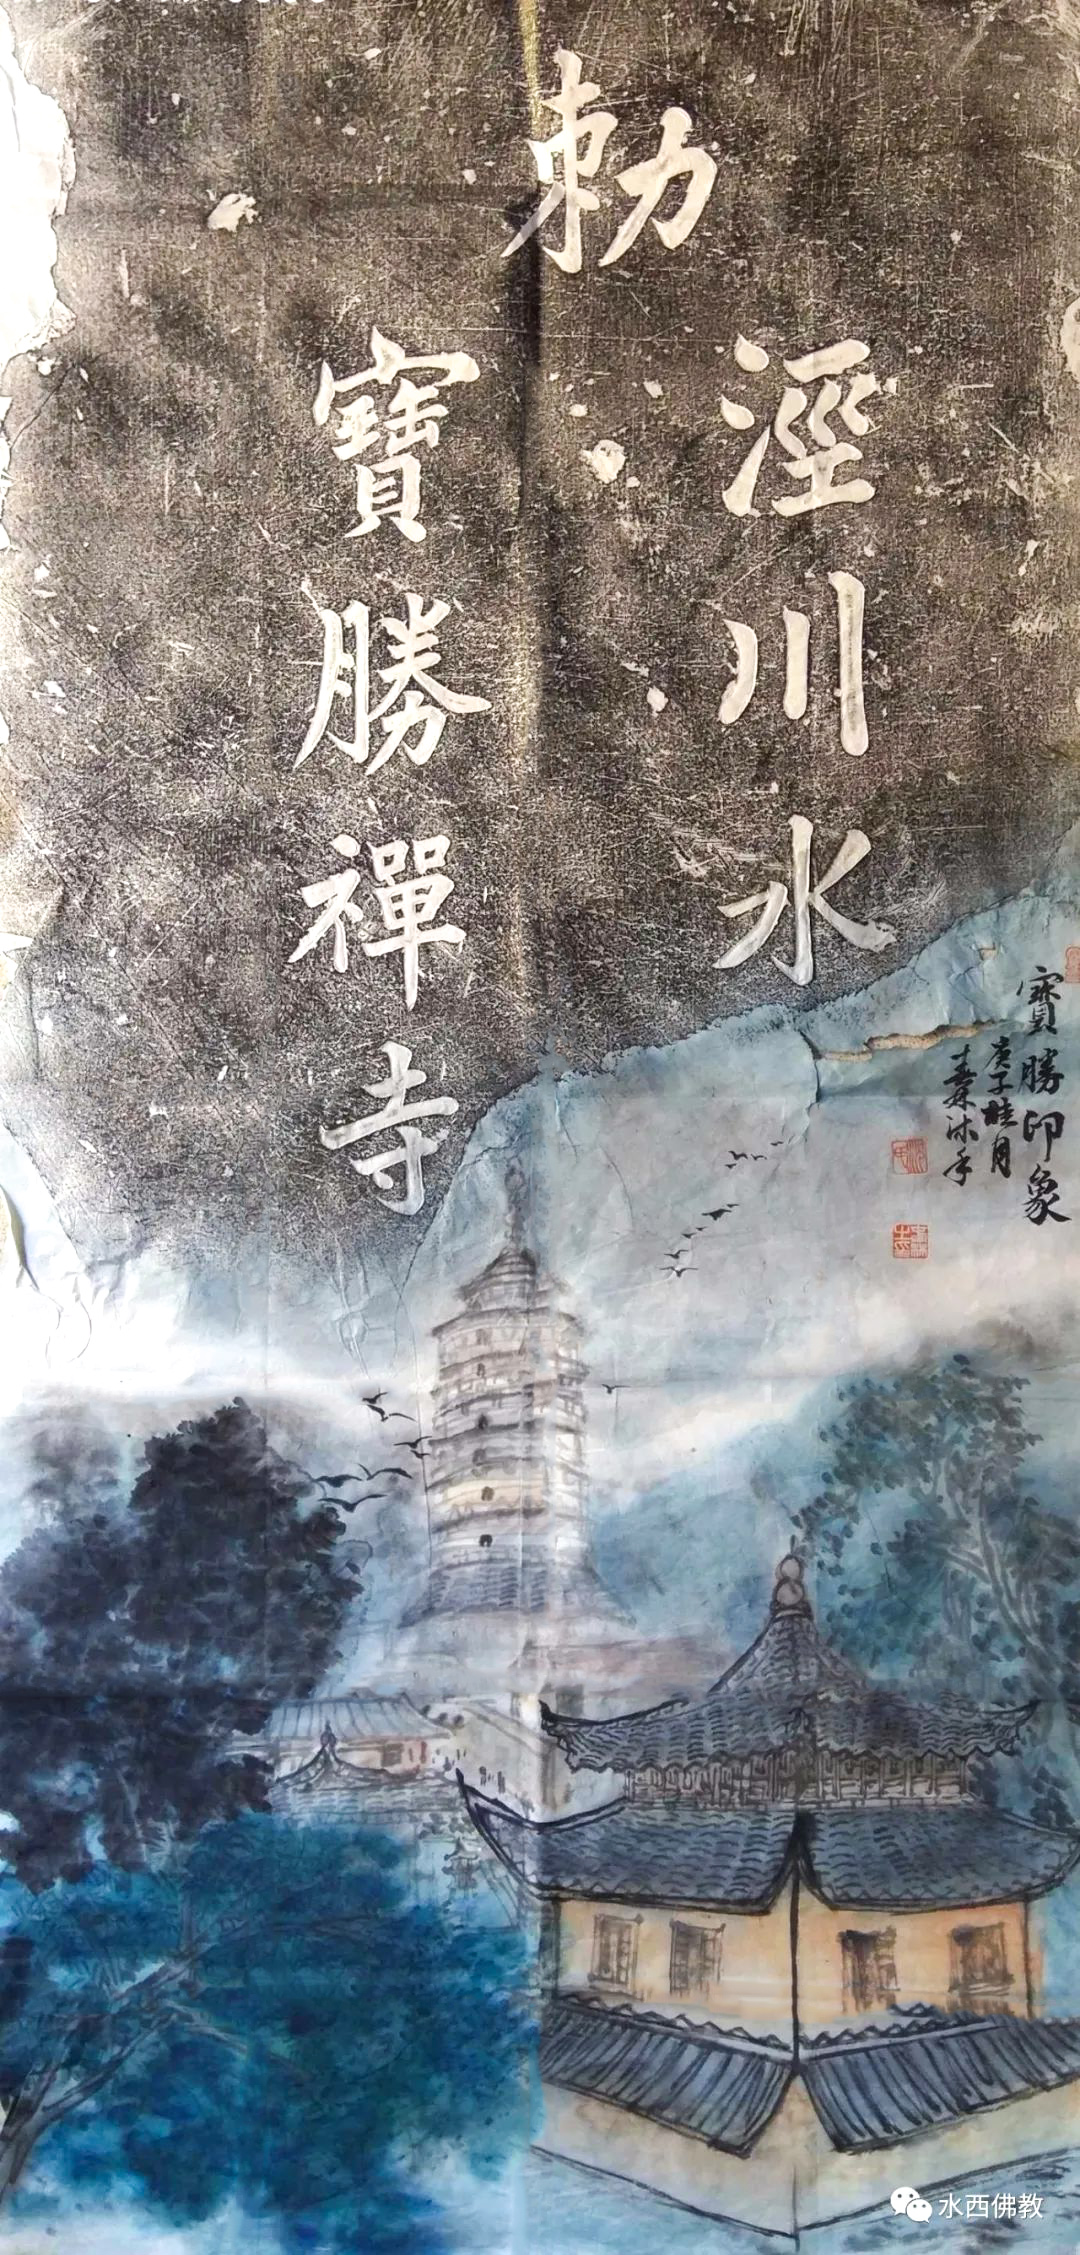 勅
涇川水
寶勝禪寺
寶勝印象
庚子桂月
水西佛教